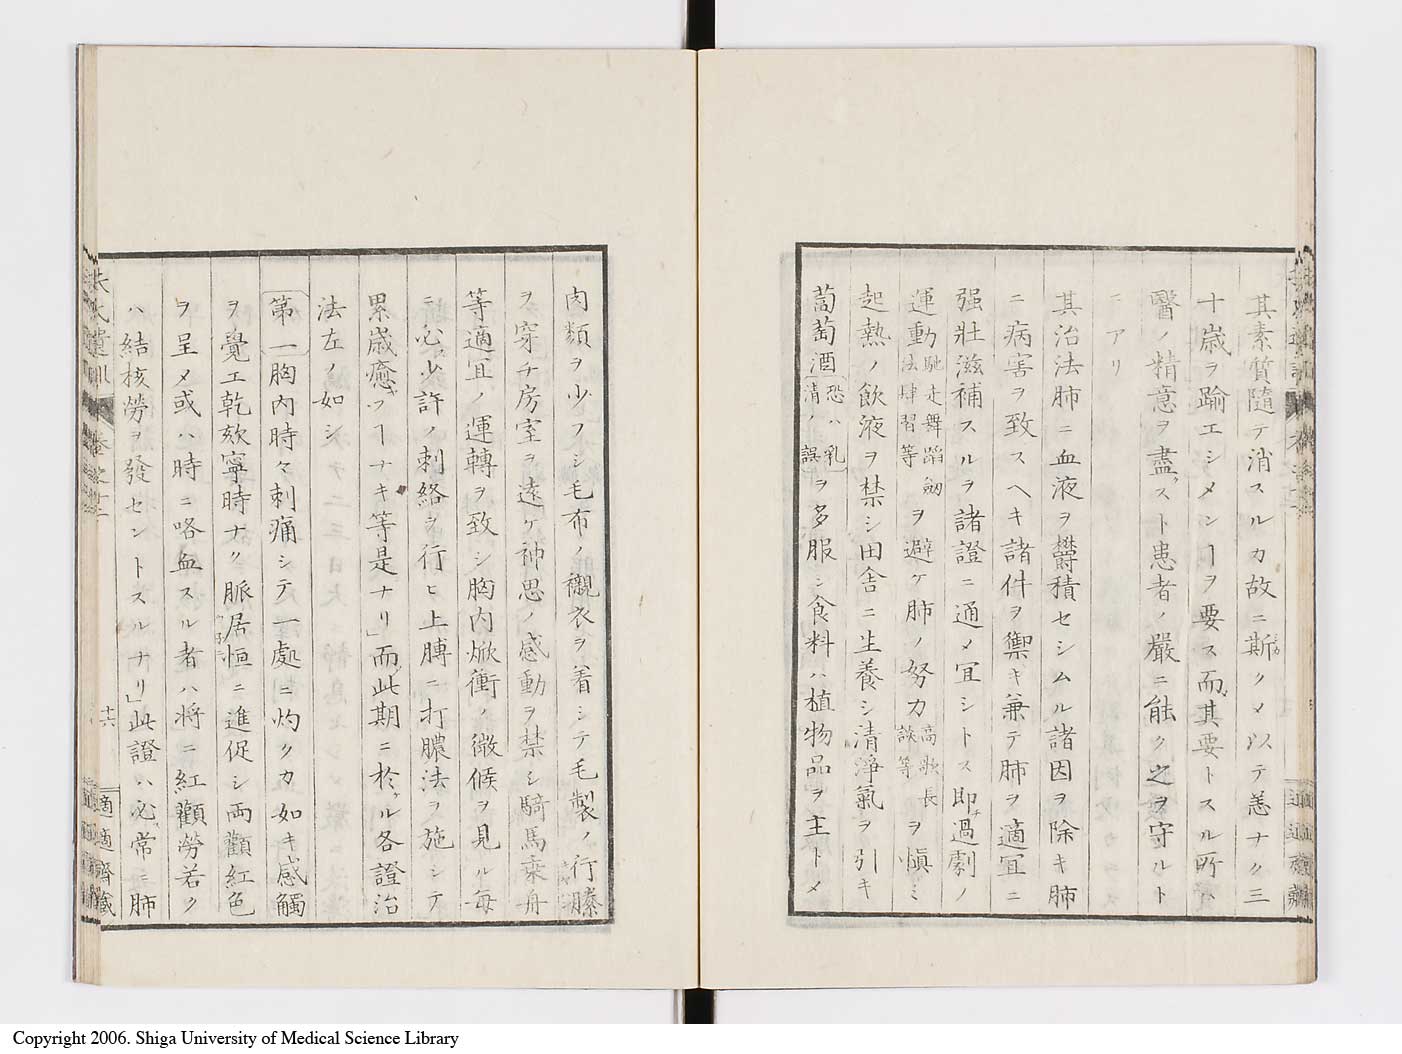 其素質隨テ消スルカ故ニ斯クメ以テ恙ナク三
十歳ヲ踰エシメンヿヲ要ス而其要トスル所ハ
醫ノ精意ヲ盡スト患者ノ嚴ニ能ク之ヲ守ルト
ニアリ
其治法肺ニ血液ヲ欝積セシムル諸因ヲ除キ肺
ニ病害ヲ致スヘキ諸件ヲ禦キ兼テ肺ヲ適冝ニ
强壯滋補スルヲ諸證ニ通メ冝シトス即過劇ノ
運動馳走舞蹈劔法肆習等ヲ避ケ肺ノ努力高歌長談等ヲ愼ミ
起熱ノ飲液ヲ禁シ田舎ニ生養シ清淨氣ヲ引キ
葡萄酒恐ハ乳清ノ誤ヲ多服シ食料ハ植物品ヲ主トメ
肉類ヲ少フシ毛布ノ襯衣ヲ着シテ毛製ノ行縢
ヲ穿チ房室ヲ遠ケ神思ノ感動ヲ禁シ騎馬乘舟
等適冝ノ運轉ヲ致シ胸内焮衝ノ徴候ヲ見ル毎
ニ必少許ノ刺絡ヲ行ヒ上膊ニ打膿法ヲ施シテ
累歳癒ヿナキ等是ナリ」而此期ニ於ル各證治
法左ノ如シ
第一胸内時々刺痛シテ一處ニ灼クカ如キ感觸
ヲ覺エ乾欬寧時ナク脈居恒ニ進促シ両顴紅色
ヲ呈メ或ハ時ニ咯血スル者ハ将ニ紅顴勞若ク
ハ結核勞ヲ發セントスルナリ」此證ハ必常ニ肺
扶氏遺訓
適適齋藏
Copyright 2006. Shiga University of Medical Science Library